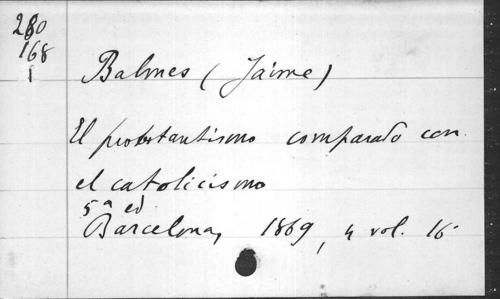 280
168
1
Balmes (Jaime)
El protestantismo comparado con
el catolicismo
5ª ed
Barcelona, 1869, 4 vol. 16°